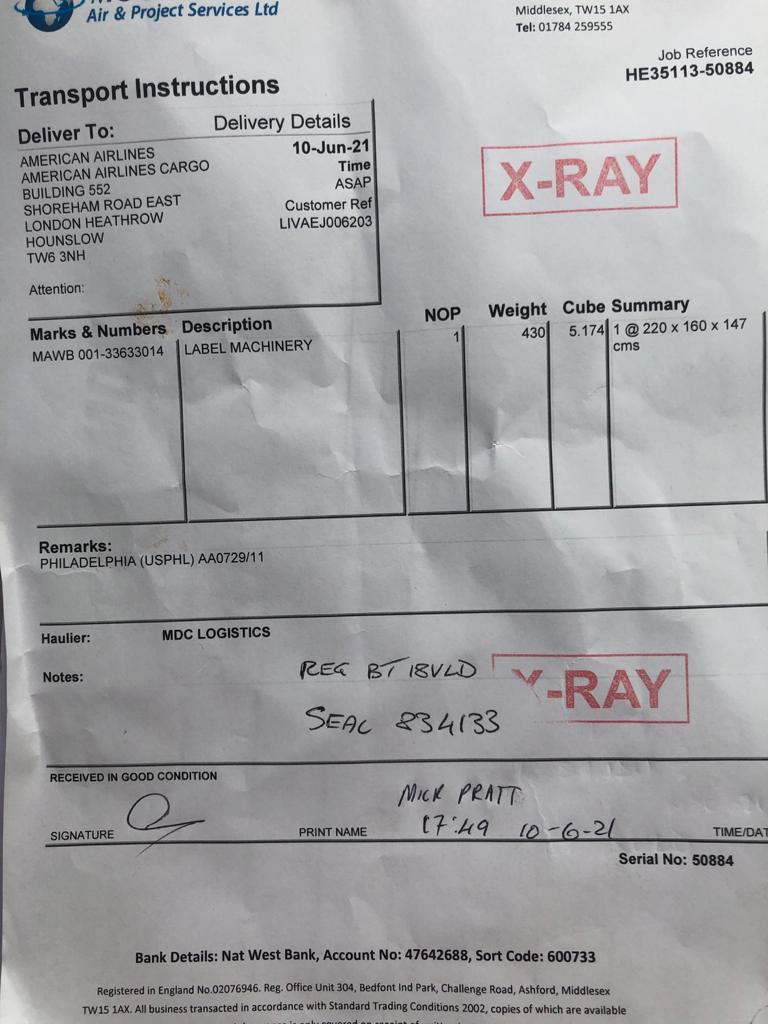 Air & Project Services Ltd
Middlesex, TW15 1AX
Tel: 01784 259555
Job Reference
HE35113-50884
Transport Instructions
Deliver To:
Delivery Details
AMERICAN AIRLINES
AMERICAN AIRLINES CARGO
BUILDING 552
SHOREHAM ROAD EAST
LONDON HEATHROW
HOUNSLOW
TW6 3NH
10-Jun-21
Time
ASAP
Customer Ref
LIVAEJ006203
Attention:
X-RAY
Marks & Numbers Description NOP Weight Cube Summary
MAWB 001-33633014 LABEL MACHINERY 1 430 5.174 1 @ 220 x 160 x 147
cms
Remarks:
PHILADELPHIA (USPHL) AA0729/11
Haulier: MDC LOGISTICS
Notes:
REG BT18VLD
X-RAY
SEAL 834133
RECEIVED IN GOOD CONDITION
MICK PRATT
SIGNATURE
PRINT NAME
17:49 10-6-21
TIME/DAT
Serial No: 50884
Bank Details: Nat West Bank, Account No: 47642688, Sort Code: 600733
Registered in England No.02076946. Reg. Office Unit 304, Bedfont Ind Park, Challenge Road, Ashford, Middlesex
TW15 1AX. All business transacted in accordance with Standard Trading Conditions 2002, copies of which are available